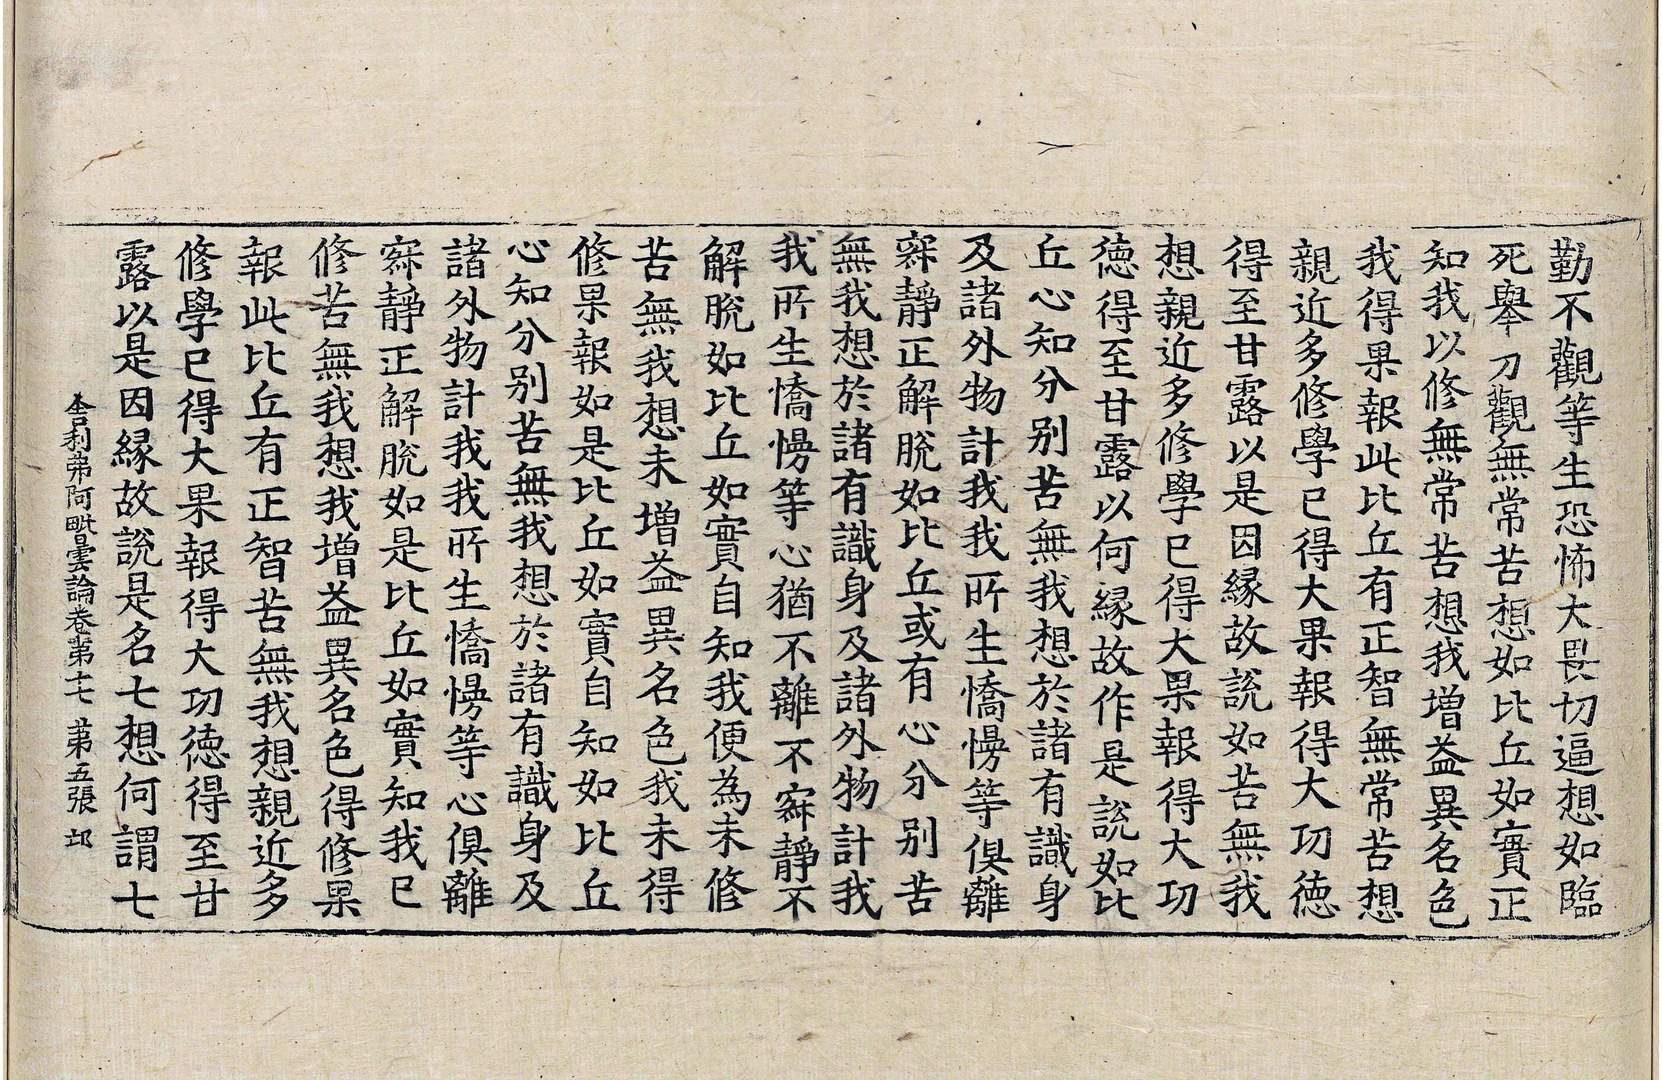 勤不觀等生恐怖大畏切逼想如臨
死舉刀觀無常苦想如比丘如實正
知我以修無常苦想我增益異名色
我得果報此比丘有正智無常苦想
親近多修學已得大果報得大功德
得至甘露以是因緣故說如苦無我
想親近多修學已得大果報得大功
德得至甘露以何緣故作是說如比
丘心知分别苦無我想於諸有識身
及諸外物計我我所生憍慢等俱離
寂靜正解脫如比丘或有心分别苦
無我想於諸有識身及諸外物計我
我所生憍慢等心猶不離不寂靜不
解脫如比丘如實自知我便為未修
苦無我想未增益異名色我未得
修果報如是比丘如實自知如比丘
心知分别苦無我想於諸有識身及
諸外物計我我所生憍慢等心俱離
寂靜正解脫如是比丘如實知我已
修苦無我想我增益異名色得修果
報此比丘有正智苦無我想親近多
修學已得大果報得大功德得至甘
露以是因緣故說是名七想何謂七
舍利弗阿毗曇論卷第十七 第五張 邱